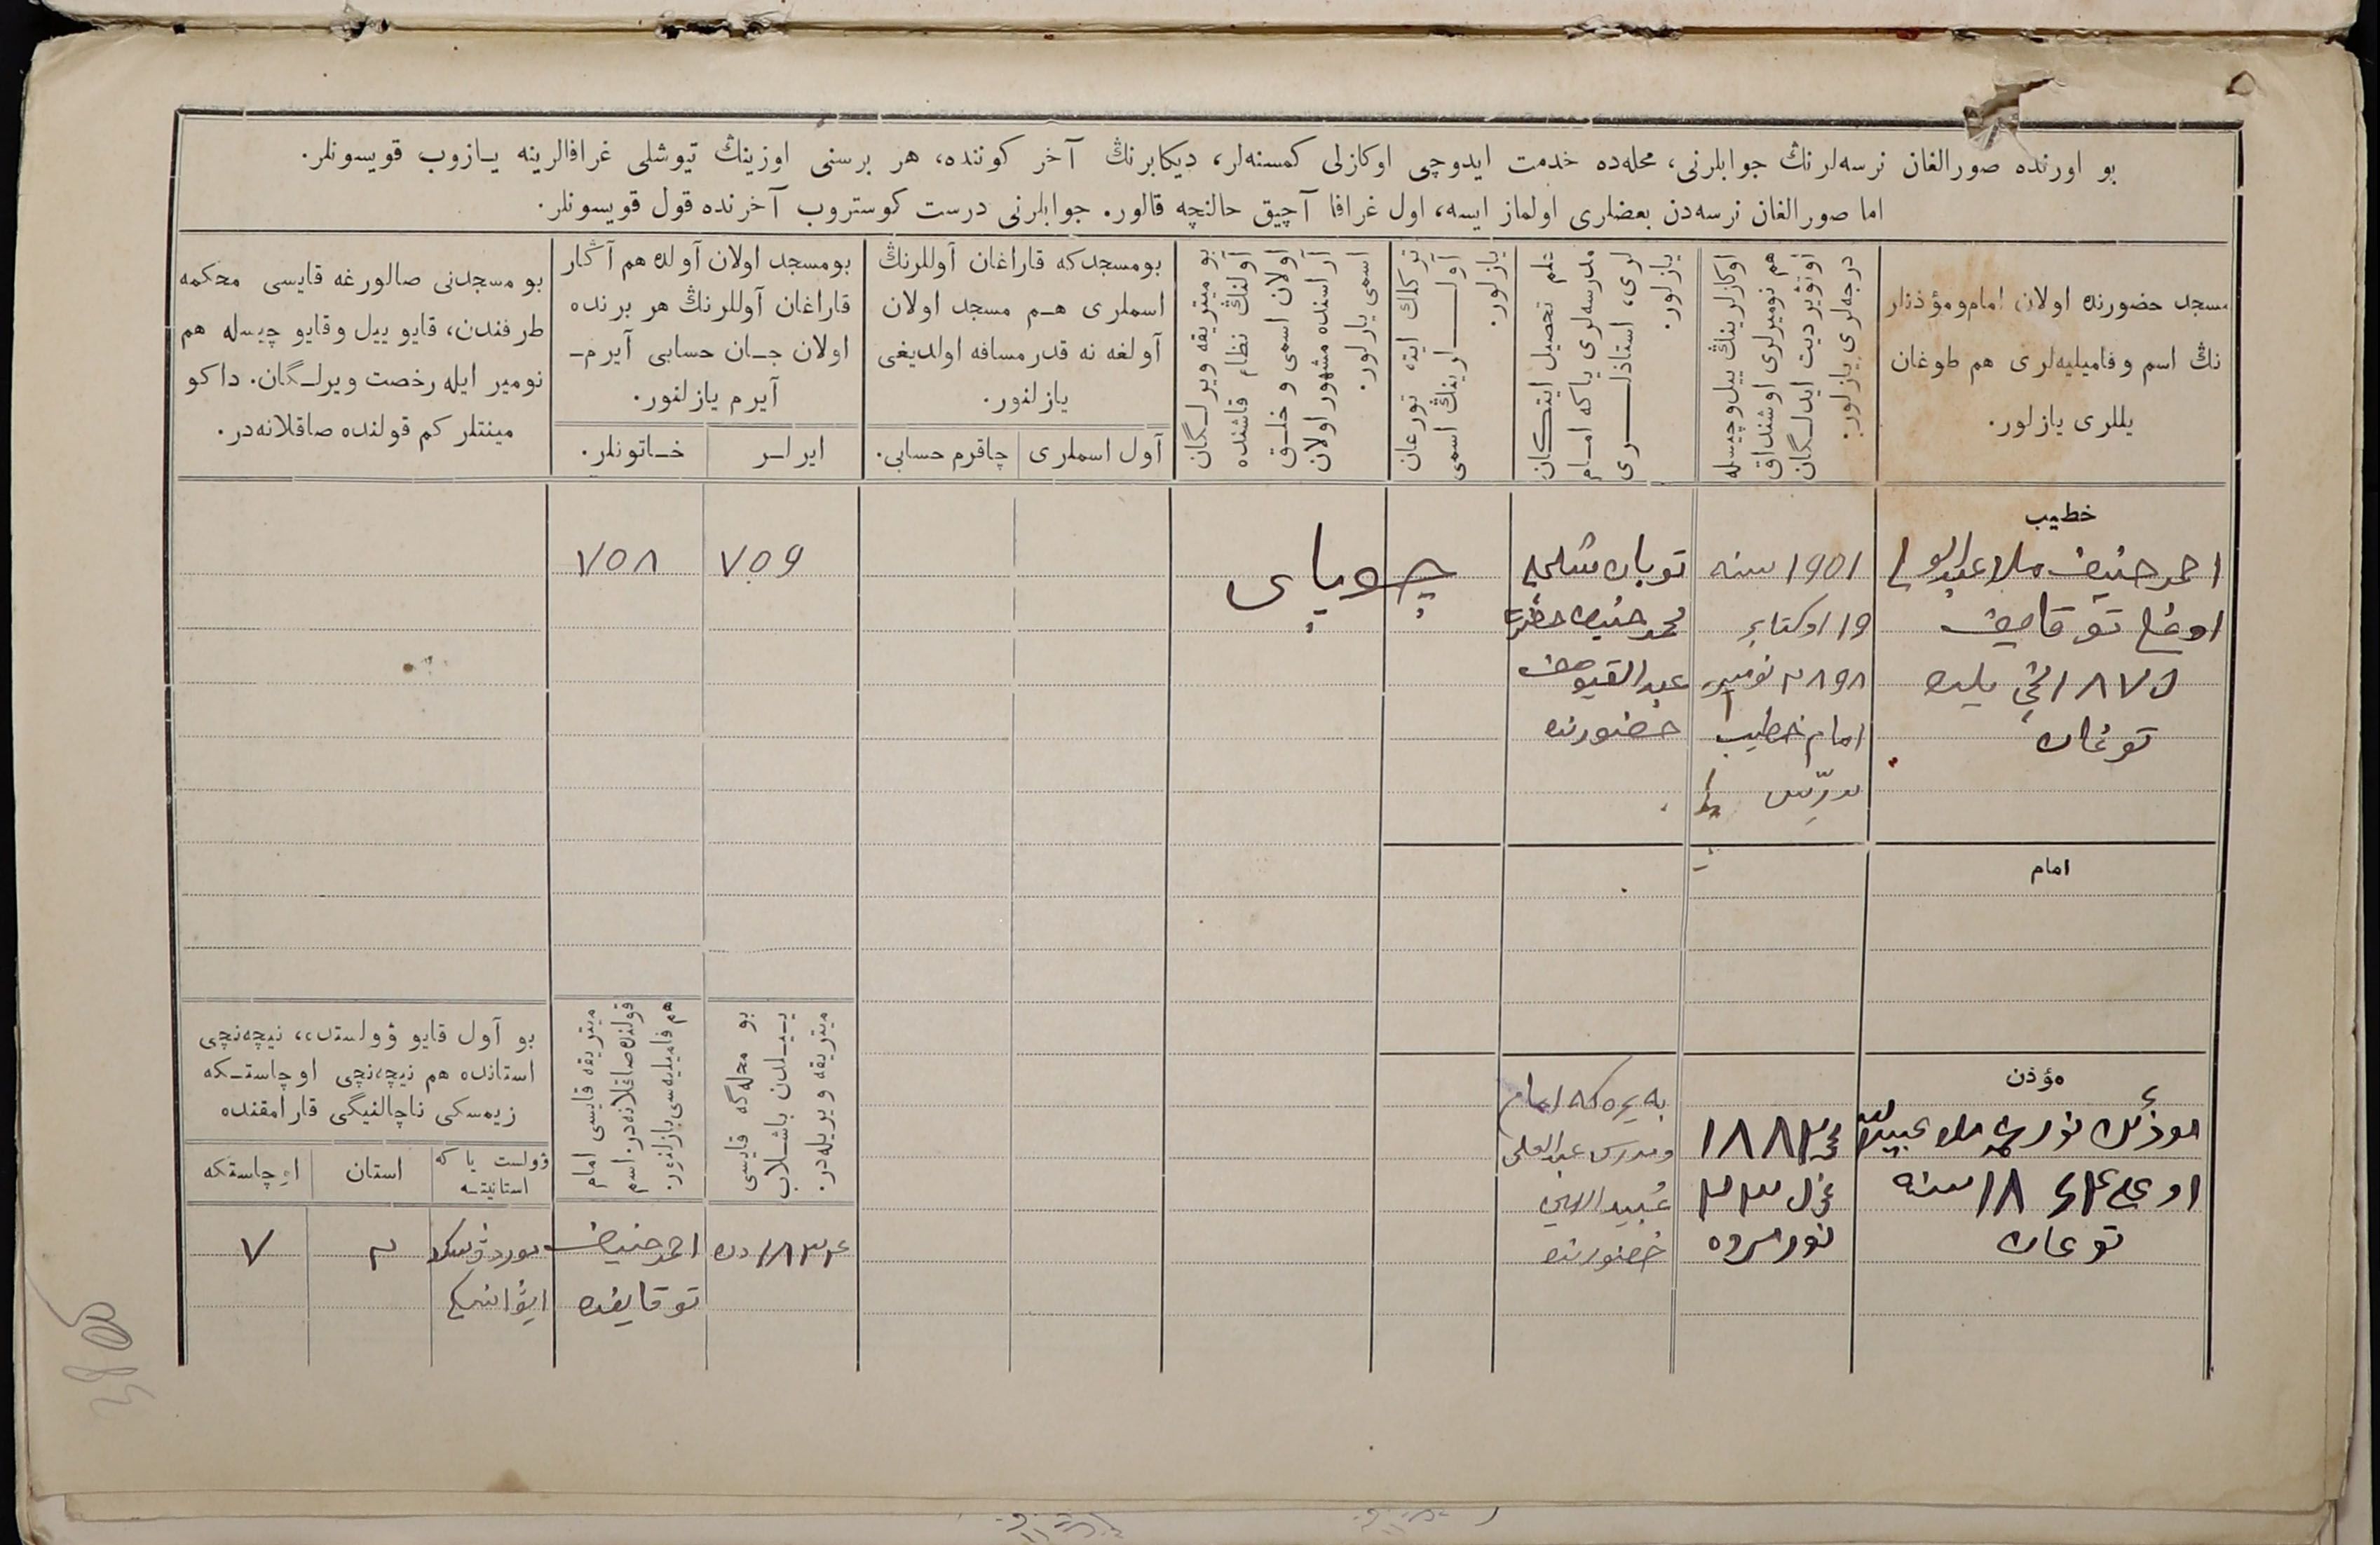 بو اورنده صورالغان نرسه‌لرنڭ جوابلرنی، محله‌ده خدمت ایدوچی اوکازلی کمسنه‌لر، دیکابرنڭ آخر کوننده، هر برسنی اوزینڭ تیوشلی غرافالرینه یـازوب قویسونلر.
اما صورالغان نرسه‌دن بعضلری اولماز ایسه، اول غرافا آچیق حالنچه قالور. جوابلرنی درست کوستروب آخرنده قول قویسونلر.
مسجد حضورنده اولان امام‌ومؤذنلر
نڭ اسم وفامیلیه‌لری هم طوغان
یللری یازلور.
اوکازلرینڭ ییل‌وچیسله
هم نومیرلری اوشنداق
اوتۋیردیت ایدلـگان
درجه‌لری یازلور.
علم تحصیل ایتـکان
مدرسه‌لری یاکه امـام
لری، استاذلــری
یازلور.
ترکلك ایته تورغان
آولــلرینڭ اسمی
یازلور.
بو میتریقه ویرلـگان
آولنڭ نظام قاشنده
اولان اسمی و خلـق
آراسنده مشهور اولان
اسمی یازلور.
بومسجدکه قاراغان آوللرنڭ
اسملری هـم مسجد اولان
آولغه نه قدر مسافه اولدیغی
یازلنور.
آول اسملری
چاقرم حسابی.
بومسجد اولان آولده هم آڭار
قاراغان آوللرنڭ هر برنده
اولان جـان حسابی آیرم‌ـ
آیرم یازلنور.
ایرلـر
خـاتونلر.
بو مسجدنی صالورغه قایسی محکمه
طرفندن، قایو ییل وقایو چیسله هم
نومیر ایله رخصت ویرلـگان. داکو
مینتلر کم قولنده صاقلانه‌در.
خطیب
احمدحنیف ملا
اوغلی توقایف
۱۸۷۵ نچی یلده
توغان
1901 سنه
۱۹ اوکتابر
۲۸۹۸ نومیر
امام خطیب
مدرّس
محمدحنیف حضرت
عبدالقیوموف
حضورنده
چوپای
۷۵۹
۷۵۸
امام
مؤذن
اوغلی ۱۸ سنه
توغان
۱۸۸۳
به‌ره‌که امام
ومدرس عبدالعلی
عُبیداللهی
حضورنده
بو محله‌گه قایسی
ییـلدن باشـلاب
میتریقه ویریله‌در.
میتریقه قایسی امام
قولنده صاقلانه‌در اسم
هم فامیلیه‌سی یازلنور.
بو آول قایو ۋولستده، نیچه‌نچی
استانده هم نیچه‌نچی اوچاستـکه
زیمسکی ناچالنیگی قارامقنده
ۋولست یا که
استانیتسه
استان
اوچاستکه
۱۸۳۴ دن
احمدحنیف
توقایفده
ایۋانیسکی
۲
۷